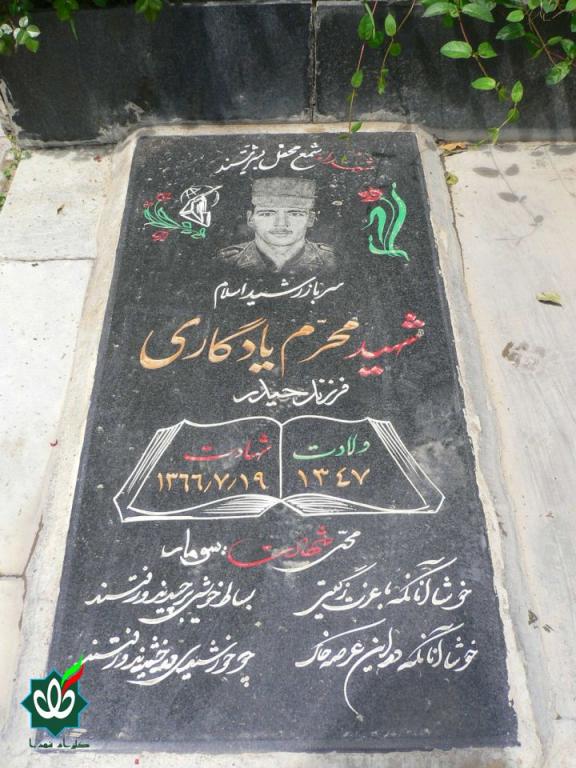 شهدا شمع محفل بشریتند
سرباز رشید اسلام
شهید محرم یادگاری
فرزند حیدر
ولادت
۱۳۴۷
شهادت
۱۳۶۶/۷/۱۹
محل شهادت: سومار
خوشا آنانکه با عزت ز گیتی
بساط خویش برچیدند و رفتند
خوشا آنانکه در این عرصه خاک
چو خورشیدی درخشیدند و رفتند